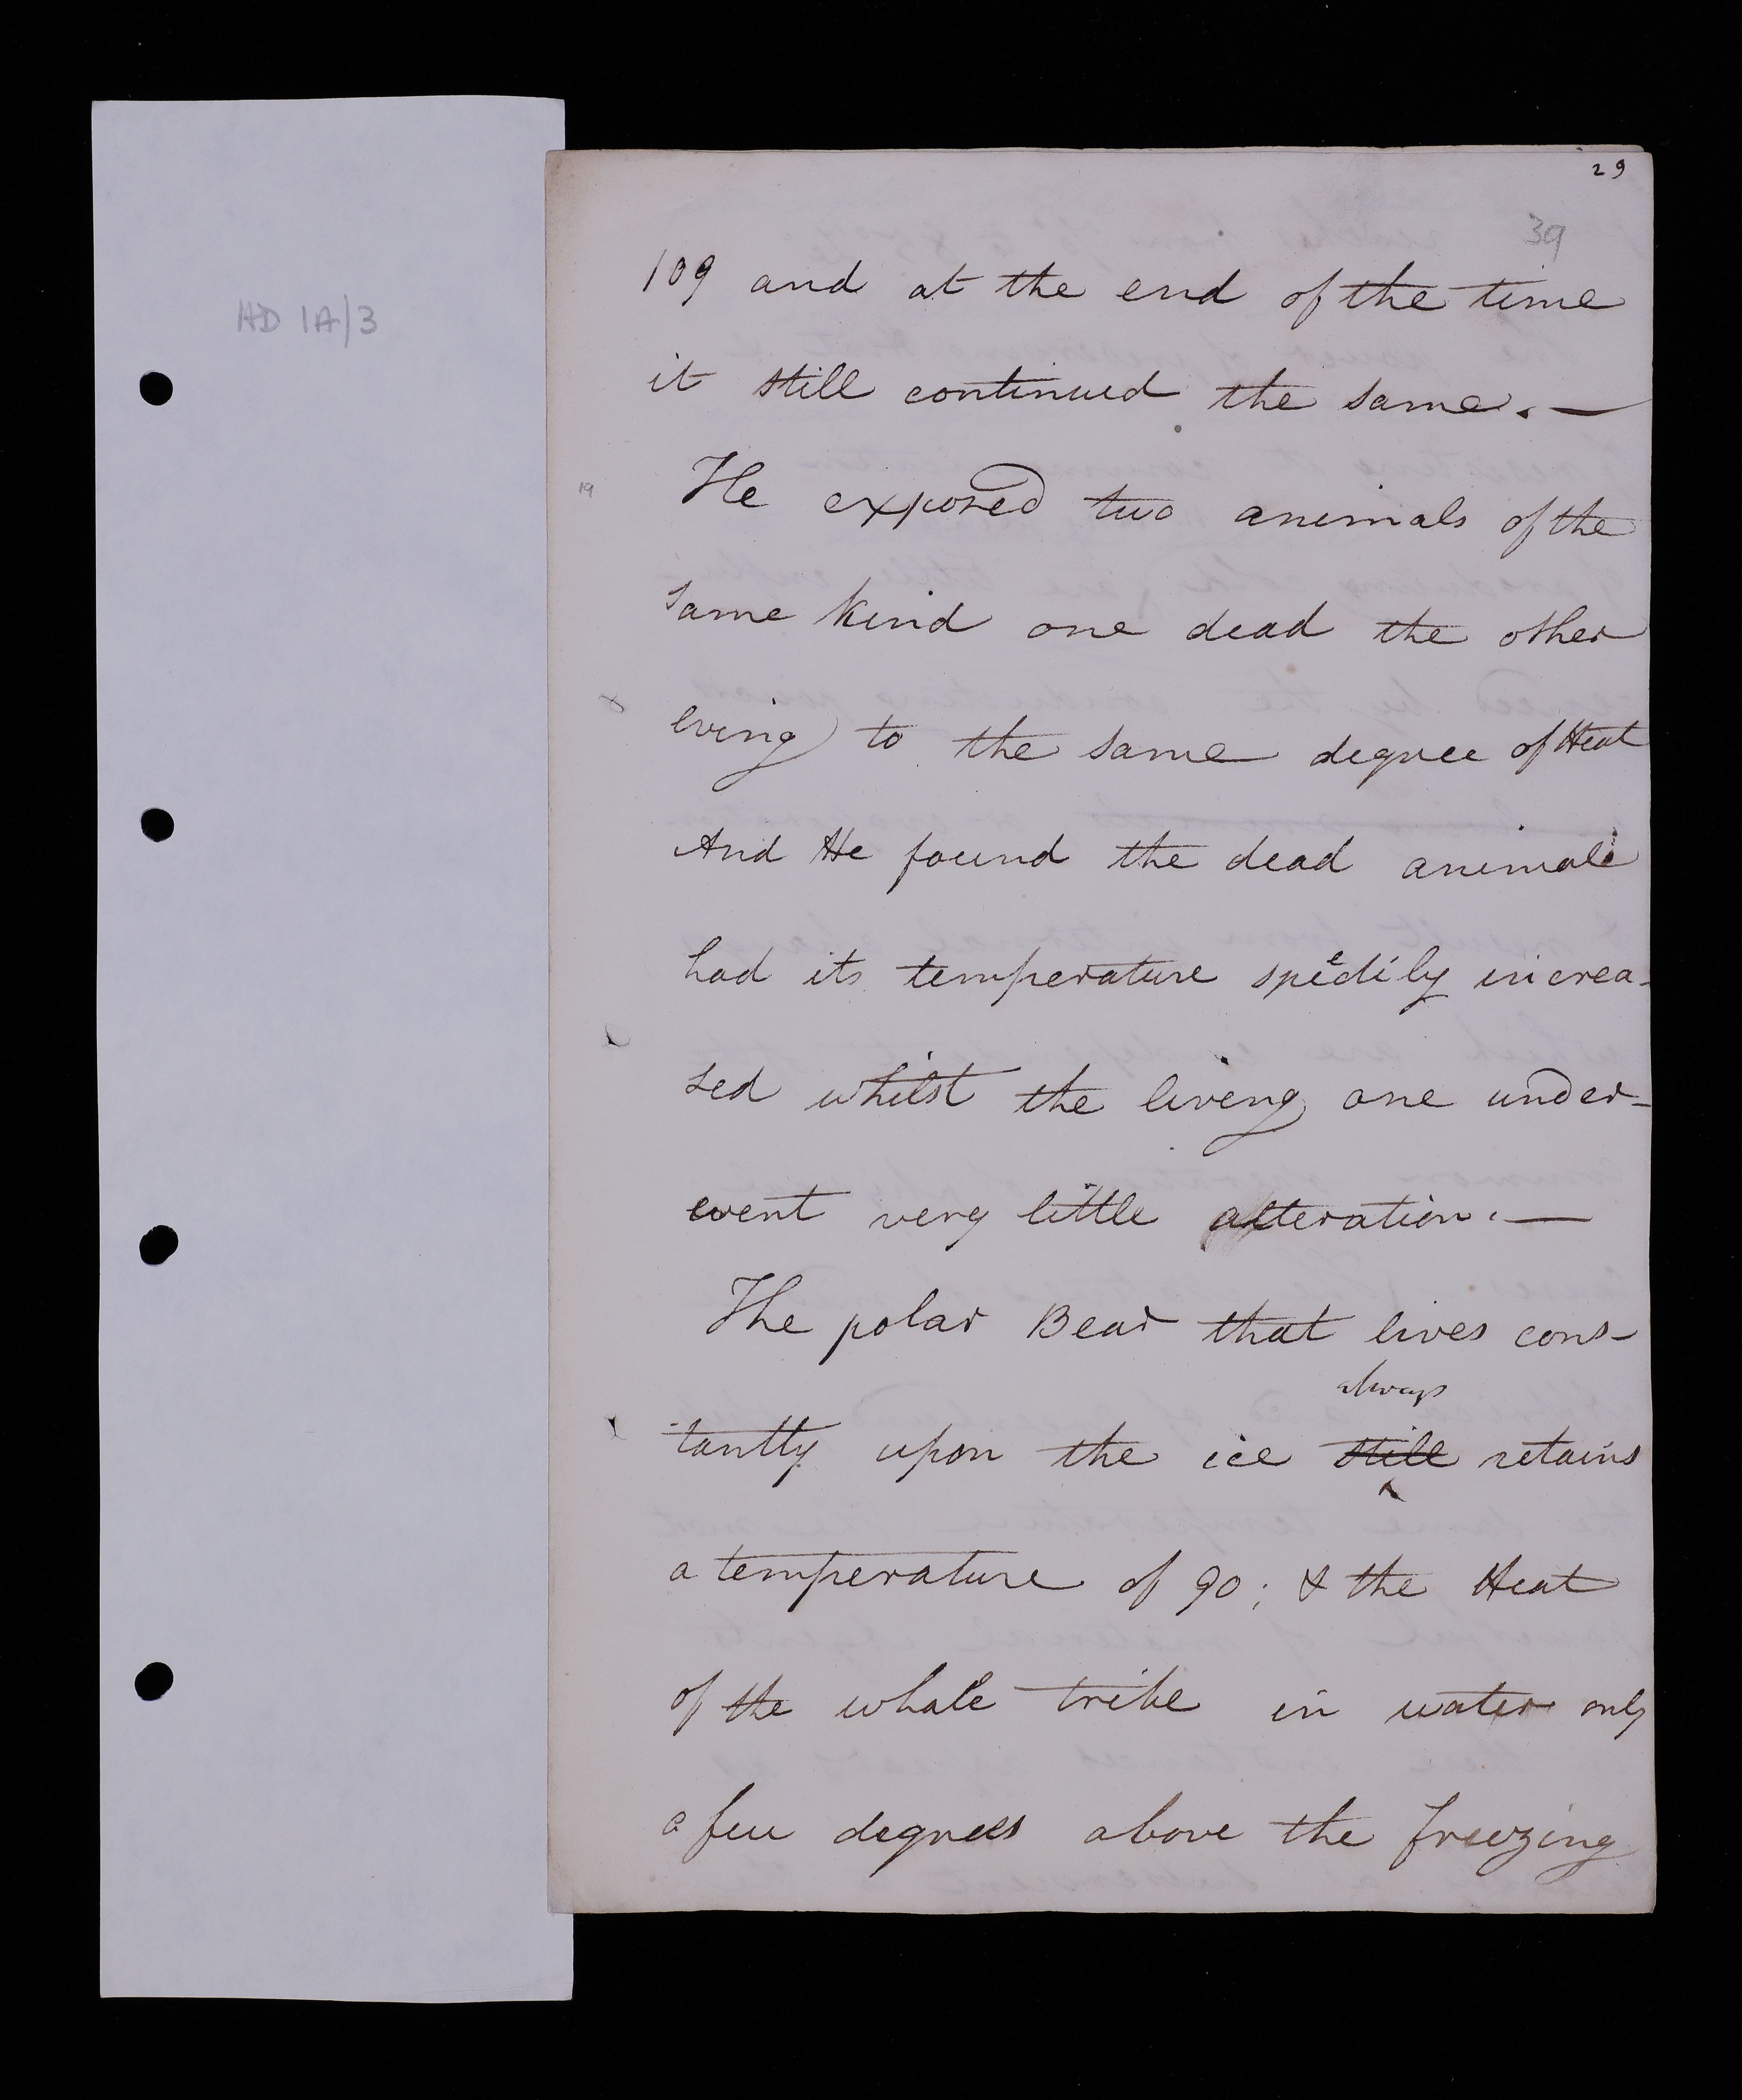 HD 1A/3
29
39
109 and at the end of the time
it still continued the same. —
19
He exposed two animals of the
same kind one dead the other
x
living to the same degree of Heat
And He found the dead animal
had its temperature speedily increa-
sed whilst the living one under-
went very little alteration. —
The polar Bear that lives cons-
always
tantly upon the ice still retains
a temperature of 90; & the Heat
of the whale tribe in water only
a few degrees above the freezing